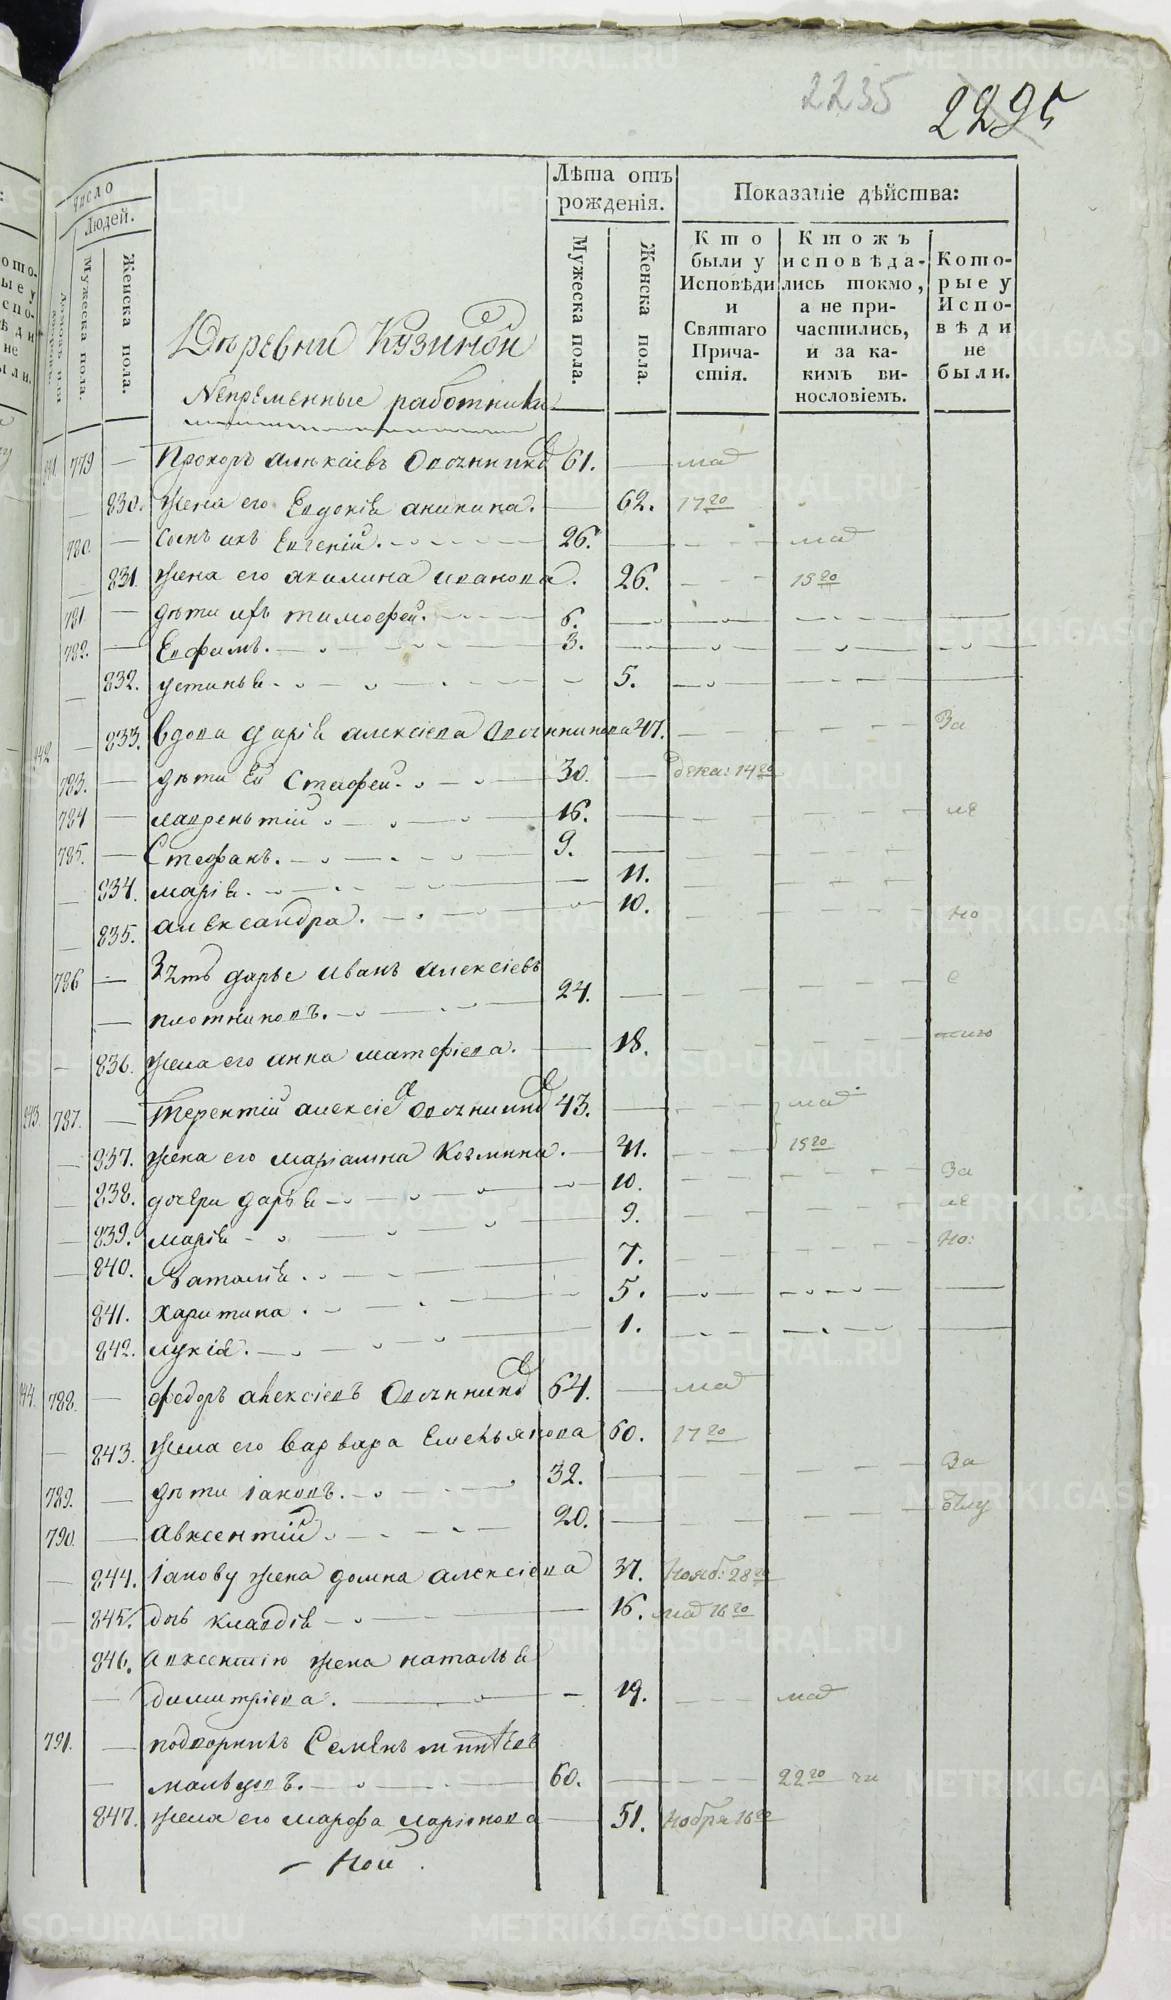 2235 2295
Число
Людей.
Мужеска пола.
Женска пола.
Лѣта отъ рожденія.
Мужеска пола.
Женска пола.
Показаніе дѣйства:
Кто были у Исповѣди и Святаго Причастія.
Ктожъ исповѣдались токмо, а не причастились, и за какимъ винословіемъ.
Которые у Исповѣди не были.
Деревни Кузиной
Непременные работники
779 — Прохоръ алексіевъ Овчинниковъ 61. — маія
— 830. жена его Евдокія аникина. — 62. 17го
780. — сынъ ихъ Евгеній. 26. — маія
— 831. жена его акилина иванова. 26. 15го
781 — дѣти ихъ тимофей. 6.
782. — Евфимъ. 3.
— 832. устинья. 5.
442 — 833. вдова дарія алексіева Овчинникова 47. За
783. — дѣти Ея Стахей. 30. — дека: 14го
784 — лаврентій 16. — не
785. — Стефанъ. 9. —
— 834. марія. 11.
— 835. александра. 10. но
786 — Зять дарье иванъ алексіевъ
— плотниковъ. 24. —
— 836. жена его анна матфіева. — 18.
443. 787. — Терентій алексіевъ Овчинниковъ 43. — маія
— 837. жена его маріамна Козмина. — 41. 15го
— 838. дочери дарья 10. За
— 839. марія 9. не
— 840. Наталія. 7. но:
841. харитина. 5.
842. лукія. 1.
444. 788. — федоръ алексіевъ Овчинниковъ 64. — маія
— 843. жена его варвара Емельянова 60. 17го
789. — дѣти іаковъ. 32. — За
790. — авксентій. 20. —
— 844. іакову жена домна алексіева 37. Нояб: 28го
— 845. дочь клавдія 16. маія 16го
846. авксентію жена наталья
— димитріева. 19. маія
791. — подворникъ Семенъ
— 60. — 22го
847. жена его марфа ларіонова — 51. Ноября 16го
— Ной.